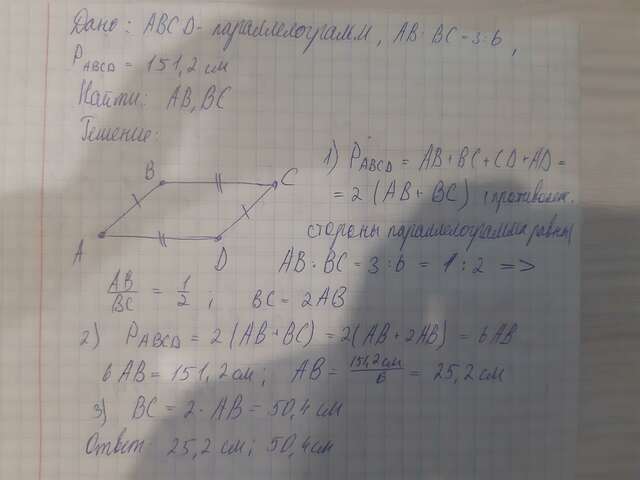 Дано: ABCD- параллелограмм, AB:BC=3:6,
P ABCD = 151,2 см
Найти: AB, BC
Решение:
1) P ABCD = AB+BC+CD+AD=
= 2 (AB+BC) (противолеж.
стороны параллелограмма равны
B C
A D
AB:BC=3:6=1:2 =>
AB/BC = 1/2; BC=2AB
2) P ABCD = 2(AB+BC)=2(AB+2AB)=6AB
6AB=151,2см; AB=151,2см/6=25,2см
3) BC=2·AB=50,4 см
Ответ: 25,2 см; 50,4см